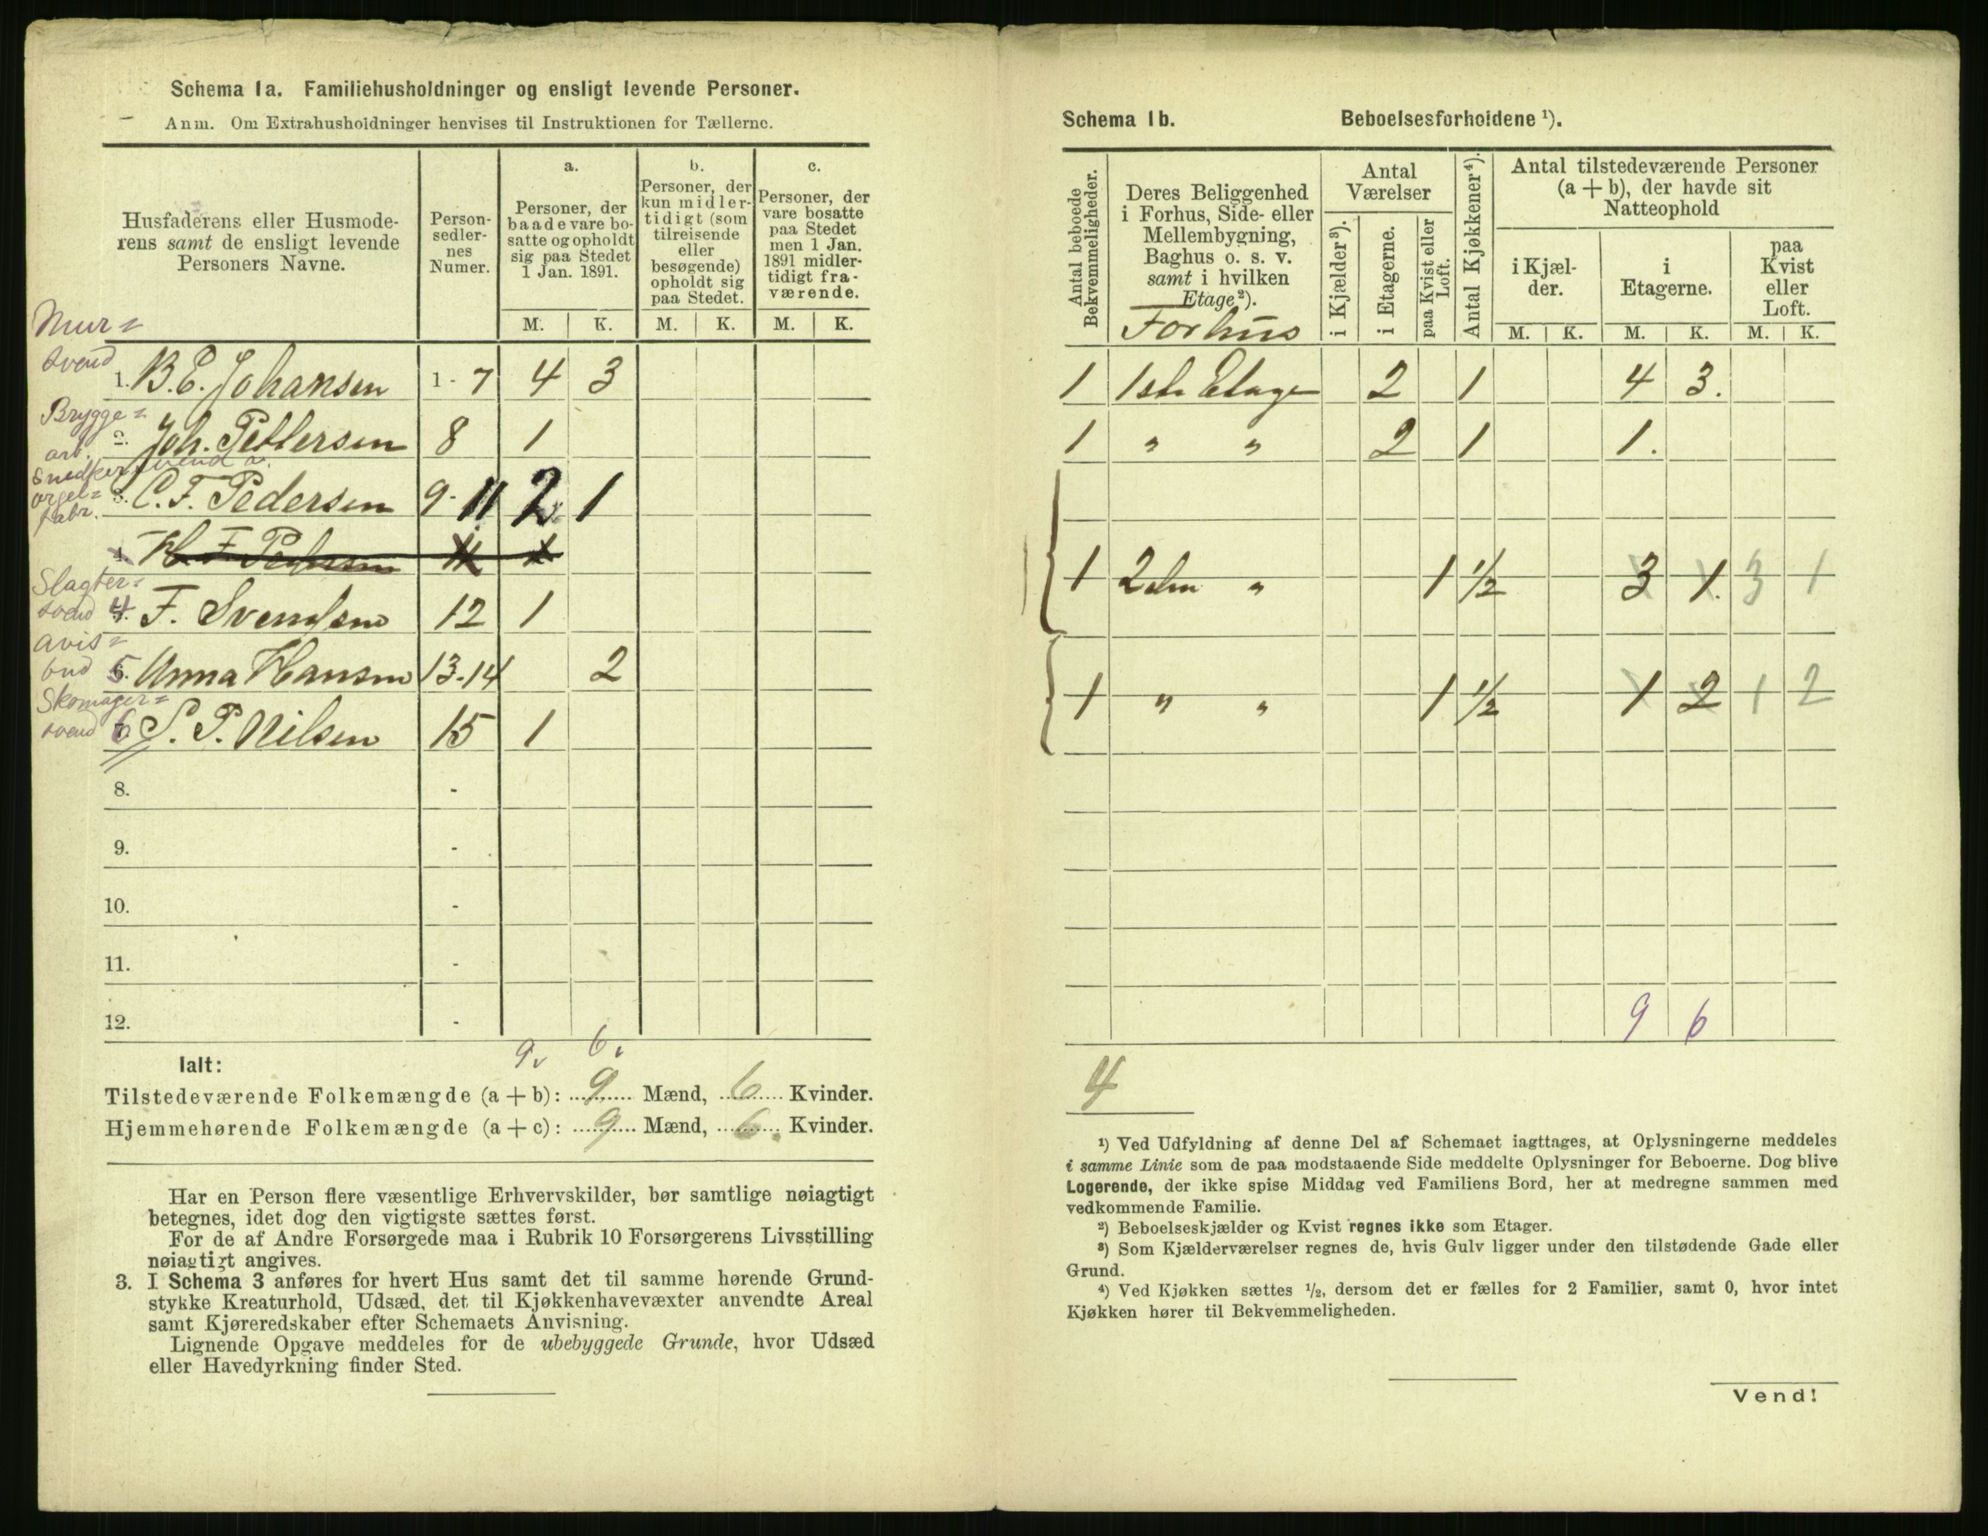 Schema 1a. Familiehusholdninger og ensligt levende Personer.
Anm. Om Extrahusholdninger henvises til Instruktionen for Tællerne.
Husfaderens eller Husmoderens samt de ensligt levende Personers Navne.
Personsedlernes Numer.
a.
Personer, der baade vare bosatte og opholdt sig paa Stedet 1 Jan. 1891.
b.
Personer, der kun midlertidigt (som tilreisende eller besøgende) opholdt sig paa Stedet.
c.
Personer, der vare bosatte paa Stedet men 1 Jan. 1891 midlertidigt fraværende.
M. K. M. K. M. K.
Mur=
svend
1. B. E. Johansen 1 - 7 4 3
Brygge=
arb.
2. Joh. Pettersen 8 1
Snedkersvend a.
orgel=
fabr.
3. C. F. Pedersen 9 - 11 2 1
4. H F Pedersen 11 1
Slagter=
svend 4. F. Svendsen 12 1
Avis=
bud 5. Anna Hansen 13-14 2
Skomager=
svend 6 S. P. Nilsen 15 1
8. -
9. -
10. -
11. -
12. -
9 6
Ialt:
Tilstedeværende Folkemængde (a + b): 9 Mænd, 6 Kvinder.
Hjemmehørende Folkemængde (a + c): 9 Mænd, 6 Kvinder.
Har en Person flere væsentlige Erhvervskilder, bør samtlige nøiagtigt
betegnes, idet dog den vigtigste sættes først.
For de af Andre Forsørgede maa i Rubrik 10 Forsørgerens Livsstilling
nøiagtigt angives.
3. I Schema 3 anføres for hvert Hus samt det til samme hørende Grund-
stykke Kreaturhold, Udsæd, det til Kjøkkenhavevæxter anvendte Areal
samt Kjøreredskaber efter Schemaets Anvisning.
Lignende Opgave meddeles for de ubebyggede Grunde, hvor Udsæd
eller Havedyrkning finder Sted.
Schema 1b. Beboelsesforholdene ¹).
Antal beboede Bekvemmeligheder.
Deres Beliggenhed i Forhus, Side- eller Mellembygning, Baghus o. s. v. samt i hvilken Etage²).
Forhus
Antal Værelser
i Kjælder³).
i Etagerne.
paa Kvist eller Loft.
Antal Kjøkkener⁴).
Antal tilstedeværende Personer (a + b), der havde sit Natteophold
i Kjælder.
i Etagerne.
paa Kvist eller Loft.
M. K. M. K. M. K.
1 1ste Etage 2 1 4 3.
1 " " 2 1 1.
1 2den " 1 1/2 3 1. 3 1
1 " " 1 1/2 1 2 1 2
9 6
4
¹) Ved Udfyldning af denne Del af Schemaet iagttages, at Oplysningerne meddeles
i samme Linie som de paa modstaaende Side meddelte Oplysninger for Beboerne. Dog blive
Logerende, der ikke spise Middag ved Familiens Bord, her at medregne sammen med
vedkommende Familie.
²) Beboelseskjælder og Kvist regnes ikke som Etager.
³) Som Kjælderværelser regnes de, hvis Gulv ligger under den tilstødende Gade eller
Grund.
⁴) Ved Kjøkken sættes ½, dersom det er fælles for 2 Familier, samt 0, hvor intet
Kjøkken hører til Bekvemmeligheden.
Vend!